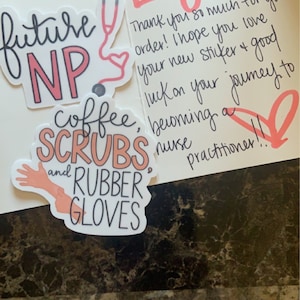 future
NP
coffee,
SCRUBS,
and RUBBER
GLOVES
Thank you so much for your
order! I hope you love
your new sticker & good
luck on your journey to
becoming a
nurse
practitioner!!